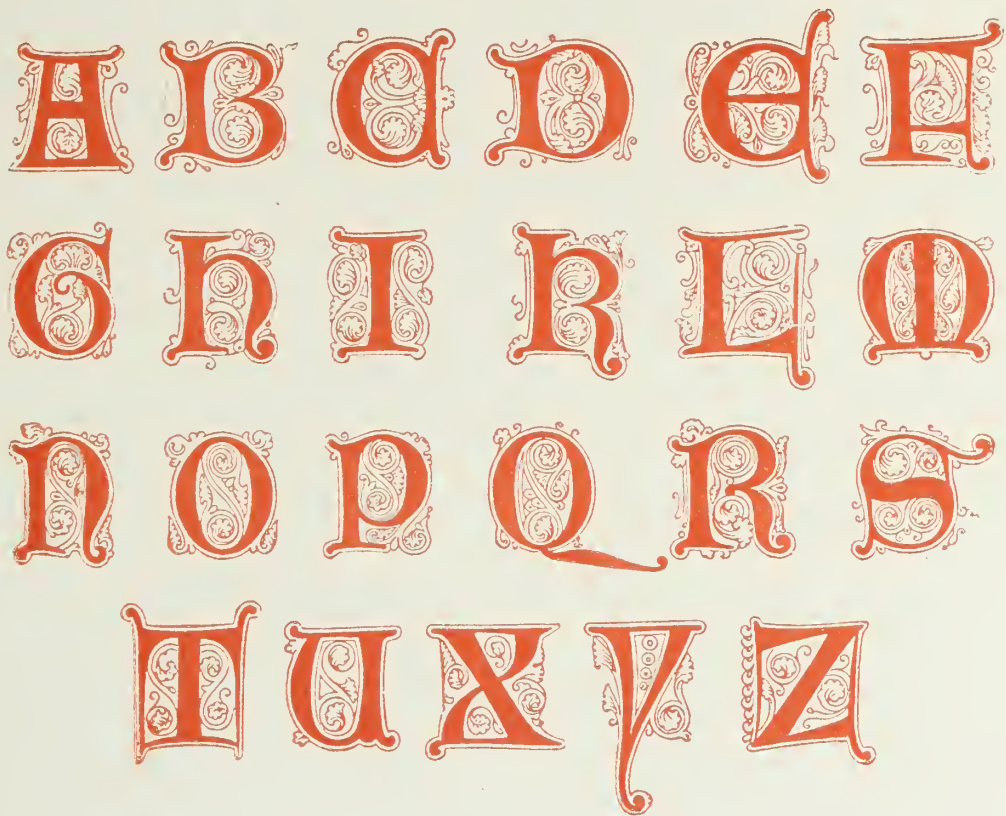 A B C D E F
G H I K L M
N O P Q R S
T U X Y Z